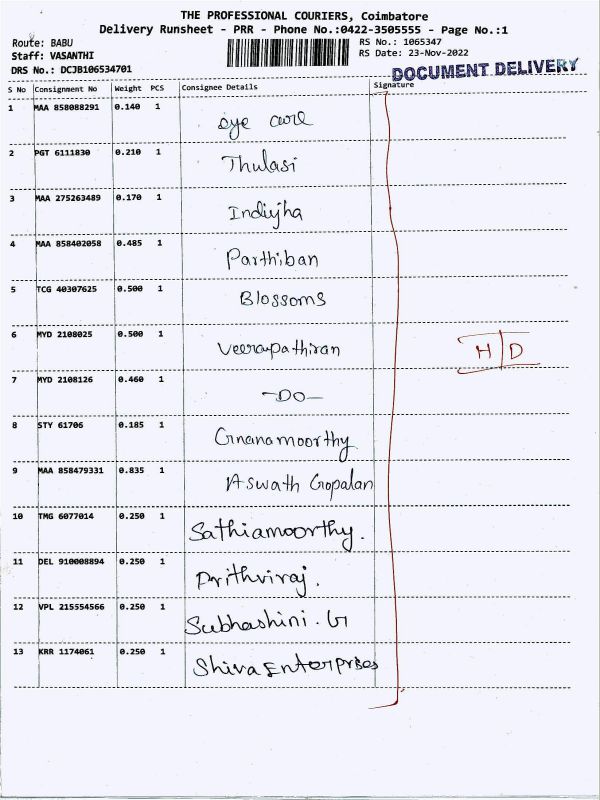 THE PROFESSIONAL COURIERS, Coimbatore
Delivery Runsheet - PRR - Phone No.:0422-3505555 - Page No.:1
Route: BABU RS No.: 1065347
Staff: VASANTHI RS Date: 23-Nov-2022
DRS No.: DCJB106534701 DOCUMENT DELIVERY
S No Consignment No Weight PCS Consignee Details Signature
1 MAA 858088291 0.140 1 eye care
2 PGT 6111830 0.210 1 Thulasi
3 MAA 275263489 0.170 1 Indiyjha
4 MAA 858402058 0.485 1 Parthiban
5 TCG 40307625 0.500 1 Blossoms
6 MYD 2108025 0.500 1 Veerapathiran H/D
7 MYD 2108126 0.460 1 -DO-
8 STY 61706 0.185 1 Gnanamoorthy
9 MAA 858479331 0.835 1 Aswath Gopalan
10 TMG 6077014 0.250 1 Sathiamoorthy.
11 DEL 910008894 0.250 1 Prithviraj.
12 VPL 215554566 0.250 1 Subhashini. G
13 KRR 1174061 0.250 1 Shiva Enterprises